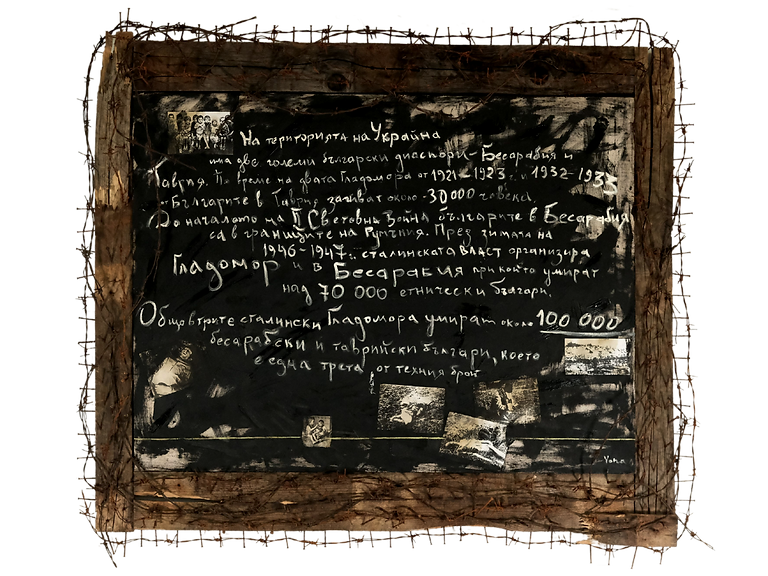 На територията на Украйна
има две големи български диаспори - Бесарабия и
Таврия. По време на двата Гладомора от 1921-1923 г. и 1932-1933
българите в Таврия загиват около 30 000 човека.
До началото на II Световна Война българите в Бесарабия
са в границите на Румъния. През зимата на
1946-1947 г. сталинската власт организира
Гладомор и в Бесарабия при който умират
над 70 000 етнически българи.
Общо в трите сталински Гладомора умират около 100 000
бесарабски и таврийски българи, което
е една трета от техния брой
Yona